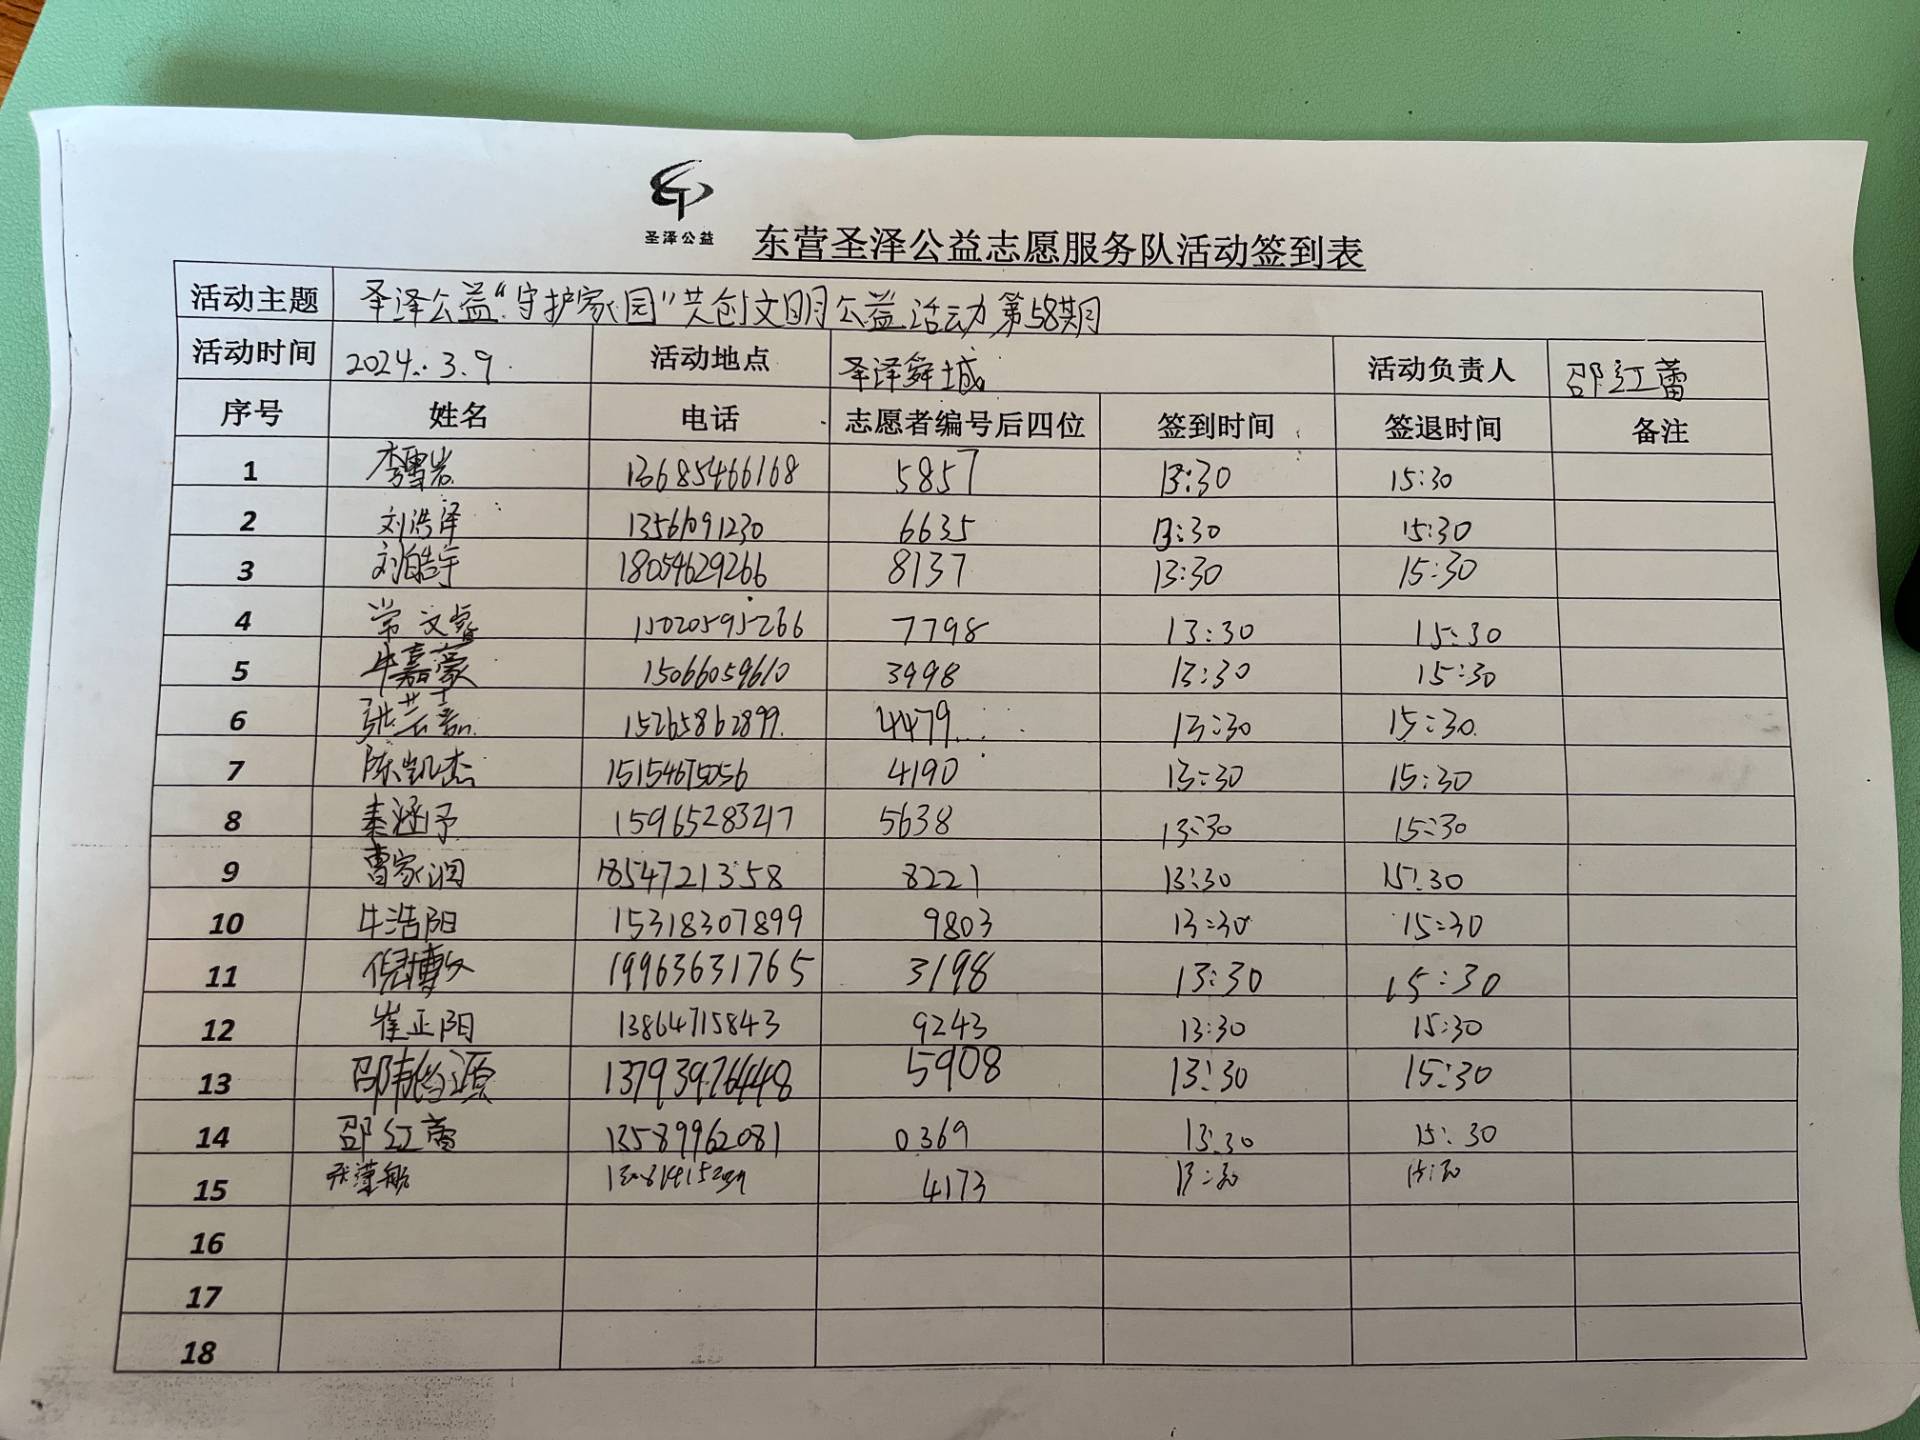 圣泽公益
东营圣泽公益志愿服务队活动签到表
活动主题 圣泽公益“守护家园”共创文明公益活动第58期
活动时间 2024.3.9. 活动地点 圣泽舜城 活动负责人 邵红蕾
序号 姓名 电话 志愿者编号后四位 签到时间 签退时间 备注
1 李雪岩 13685466168 5857 13:30 15:30
2 刘浩泽 13561091230 6635 13:30 15:30
3 刘皓宇 18054629266 8137 13:30 15:30
4 常文睿 15020595266 7798 13:30 15:30
5 牛嘉豪 15066059610 3998 13:30 15:30
6 张芸嘉 15265862899 4479 13:30 15:30
7 陈凯杰 15154675056 4190 13:30 15:30
8 秦涵予 15965283217 5638 13:30 15:30
9 曹家润 1854721358 8221 13:30 15:30
10 牛浩阳 15318307899 9803 13:30 15:30
11 倪博文 19963631765 3198 13:30 15:30
12 崔正阳 13864715843 9243 13:30 15:30
13 13793976448 5908 13:30 15:30
14 邵红蕾 13589962081 0369 13:30 15:30
15 4173 13:30 15:30
16
17
18